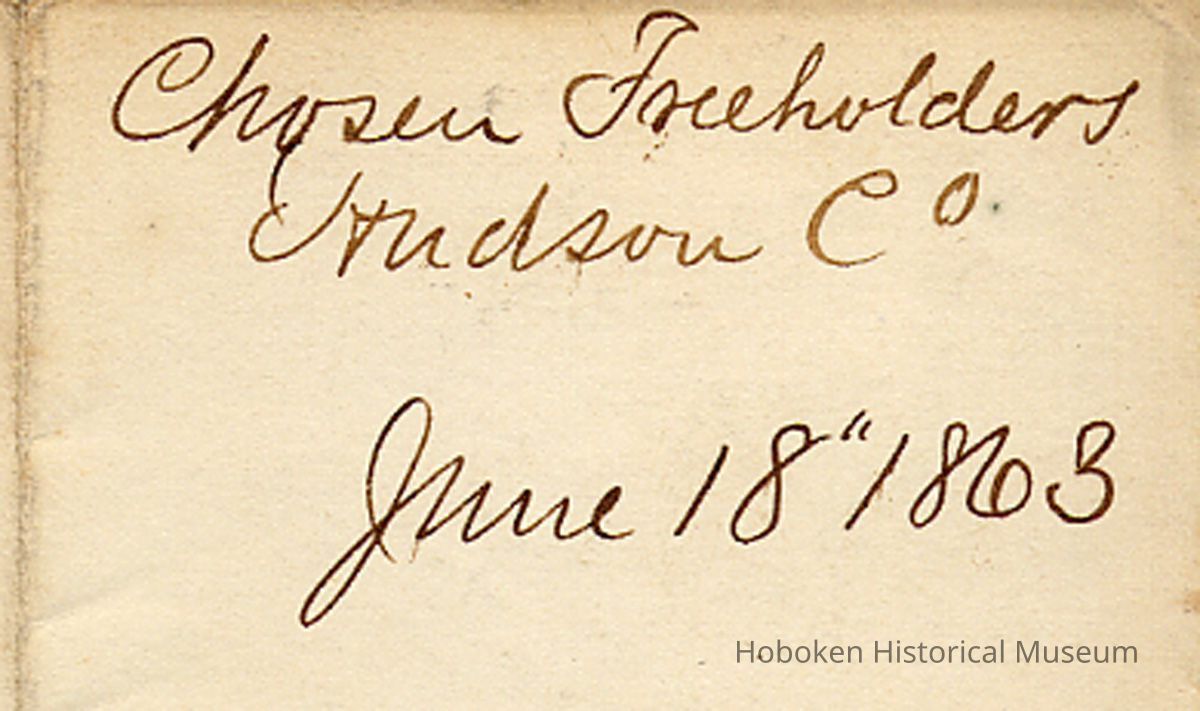 Chosen Freeholders
Hudson Co
June 18" 1863
Hoboken Historical Museum